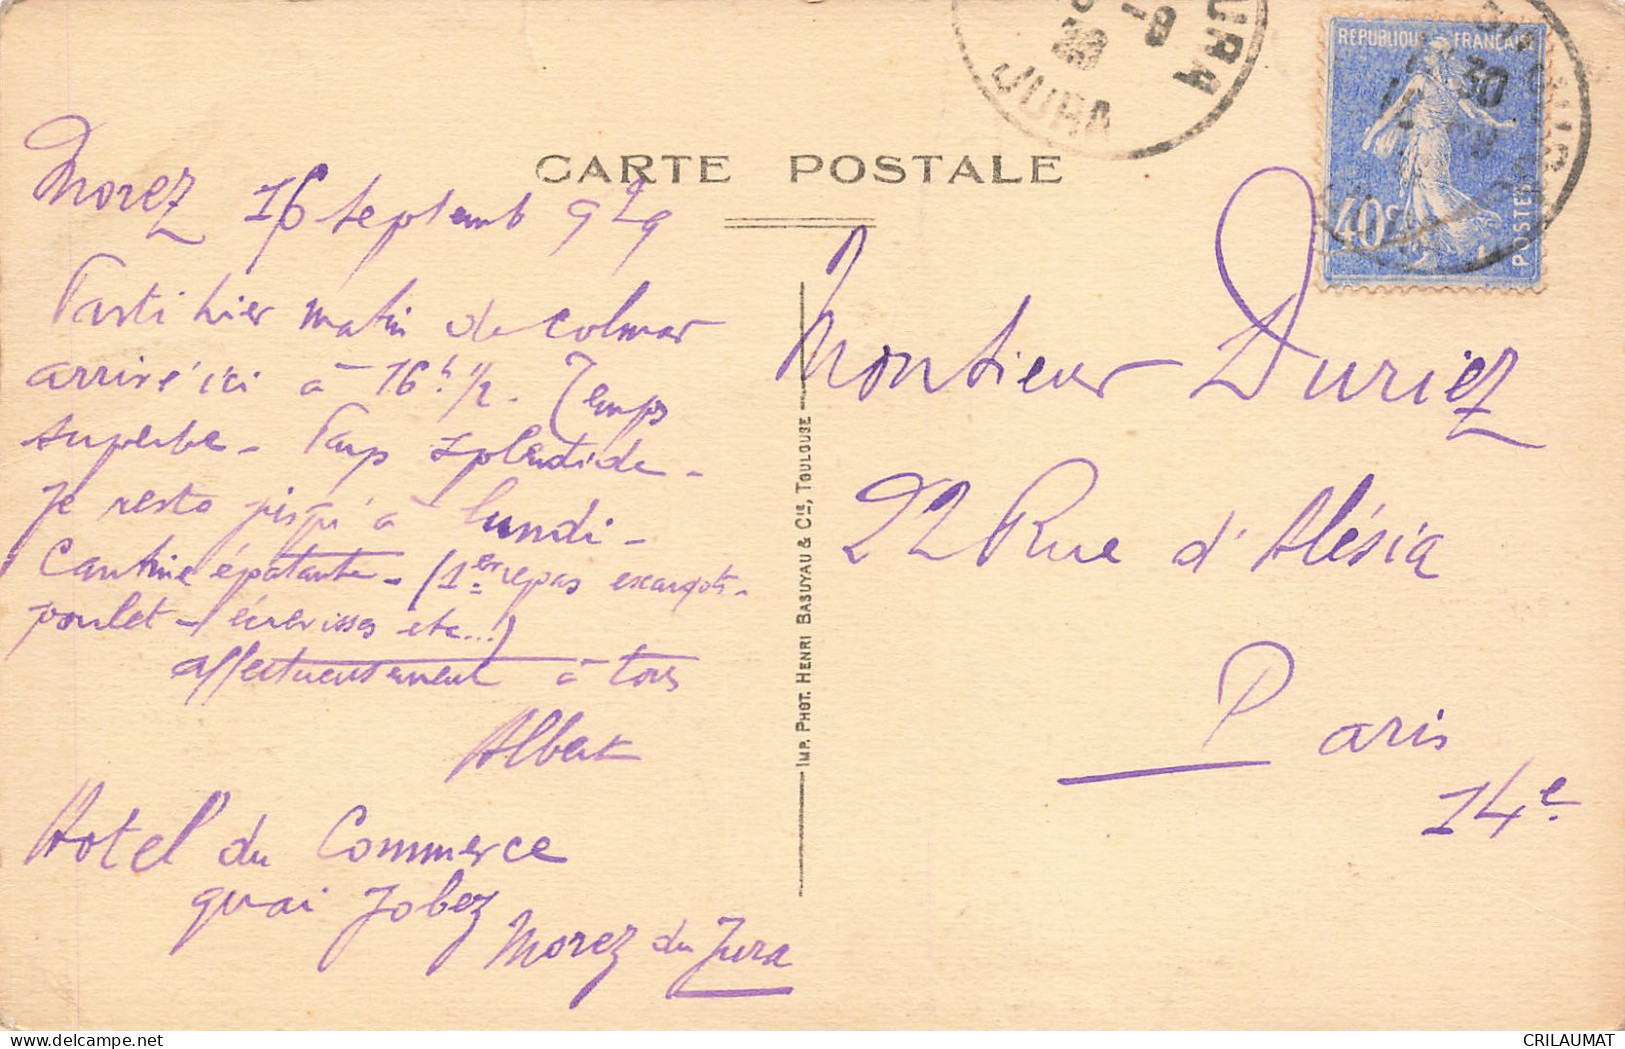 CARTE POSTALE
JURA
REPUBLIQUE FRANÇAISE
40c
POSTES
Morez 16 septemb 929
Parti hier matin de Colmar
arrivé ici à 16h 1/2. Temps
superbe - Pays splendide -
Je reste jusqu'à lundi -
Cantine épatante - (1er repas escargots -
poulet - écrevisses etc...)
affectueusement à tous
Albert
Hotel du Commerce
quai Jobez
Morez du Jura
IMP. PHOT. HENRI BASUYAU & Cie, TOULOUSE
Monsieur Duriez
22 Rue d'Alésia
Paris
14e
www.delcampe.net
CRILAUMAT